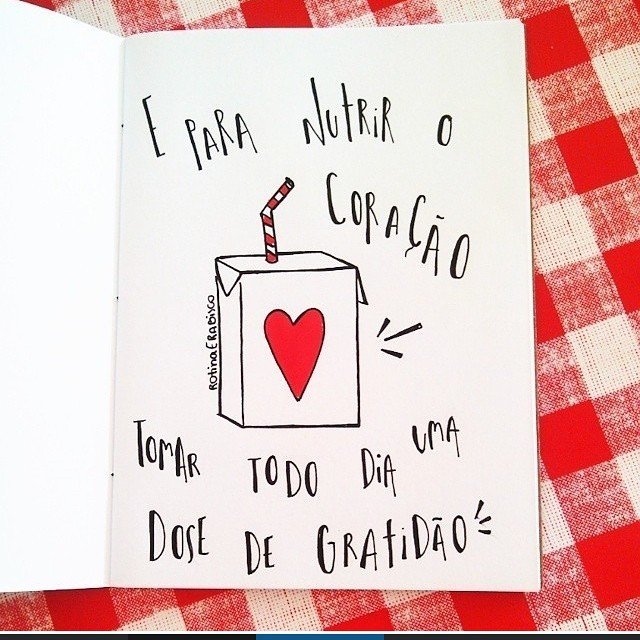 E PARA NUTRIR O
CORAÇÃO
ROtinaERABisCO
TOMAR TODO DiA UMA
DOSE DE GRAtiDÃO